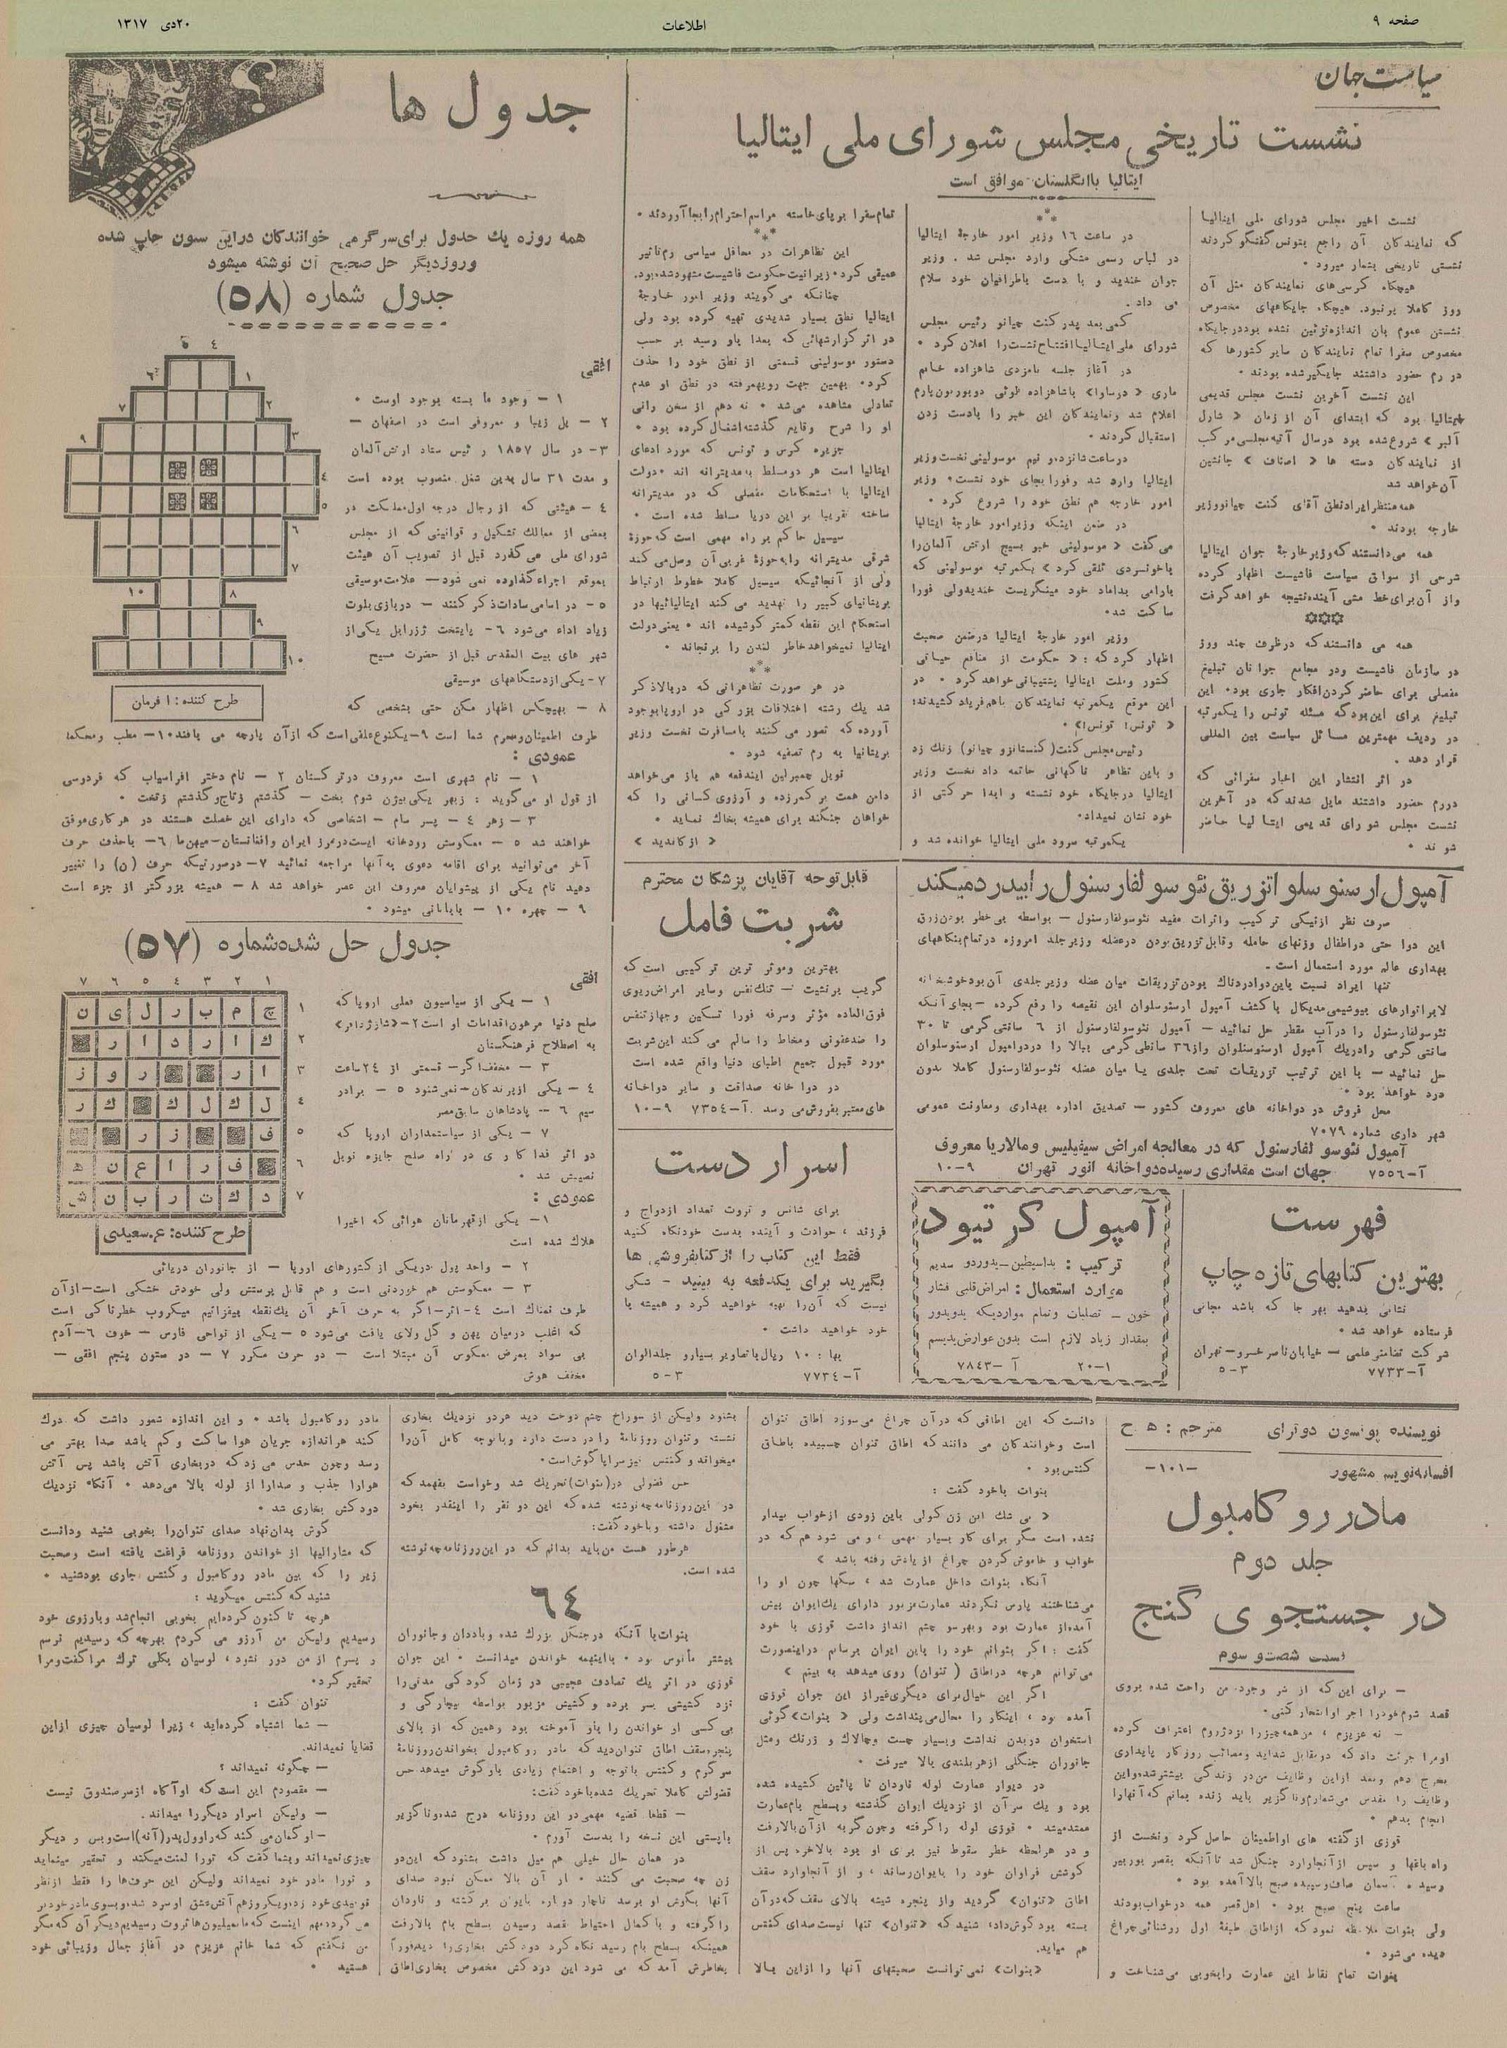 صفحه ۹
اطلاعات
۲۰دی ۱۳۱۷
سیاست جهان
نشست تاریخی مجلس شورای ملی ایتالیا
ایتالیا باانگلستان موافق است
نشست اخیر مجلس شورای ملی ایتالیا
که نمایندگان آن راجع بتونس گفتگو کردند
نشستی تاریخی بشمار میرود •
هیچگاه کرسی‌های نمایندگان مثل آن
روز کاملا پرنبود. هیچگاه جایگاههای مخصوص
نشستن عموم بان اندازه تزئین نشده بود در جایگاه
مخصوص سفرا تمام نمایندگان سایر کشورها که
در رم حضور داشتند جایگیر شده بودند •
این نشست آخرین نشست مجلس قدیمی
ایتالیا بود که ابتدای آن از زمان « شارل
آلبر » شروع شده بود درسال آتیه مجلسی مرکب
از نمایندگان دسته ها « اصناف » جانشین
آن خواهد شد
همه منتظر ایراد نطق آقای کنت چیانو وزیر
خارجه بودند •
همه می‌دانستند که وزیر خارجهٔ جوان ایتالیا
شرحی از سوابق سیاست فاشیست اظهار کرده
و از آن برای خط مشی آینده نتیجه خواهد گرفت
همه می دانستند که در ظرف چند روز
در سازمان فاشیست و در مجامع جوانان تبلیغ
مفصلی برای حاضر کردن افکار جاری بود• این
تبلیغ برای این بود که مسئله تونس را یکمرتبه
در ردیف مهمترین مسائل سیاست بین المللی
قرار دهد •
در اثر انتشار این اخبار سفرائی که
در رم حضور داشتند مایل شدند که در آخرین
نشست مجلس شورای قدیمی ایتالیا حاضر
شوند •
در ساعت ۱۶ وزیر امور خارجهٔ ایتالیا
در لباس رسمی مشکی وارد مجلس شد . وزیر
جوان خندید و با دست باطرافیان خود سلام
می داد.
کمی بعد پدر کنت چیانو رئیس مجلس
شورای ملی ایتالیا افتتاح نشست را اعلان کرد •
در آغاز جلسه نامزدی شاهزاده خانم
ماری « درساوا » باشاهزاده لوئی دوبوربون پارم
اعلام شد و نمایندگان این خبر را بادست زدن
استقبال کردند •
درساعت شانزده و نیم موسولینی نخست وزیر
ایتالیا وارد شد و فورا بجای خود نشست • وزیر
امور خارجه هم نطق خود را شروع کرد •
در ضمن اینکه وزیر امور خارجهٔ ایتالیا
می گفت « موسولینی خبر بسیج ارتش آلمان را
باخونسردی تلقی کرد » یکمرتبه موسولینی که
بارامی بداماد خود مینگریست خندید ولی فورا
ساکت شد•
وزیر امور خارجهٔ ایتالیا درضمن صحبت
اظهار کرد که : « حکومت از منافع حیاتی
کشور و ملت ایتالیا پشتیبانی خواهد کرد • در
این موقع یکمرتبه نمایندگان باهم فریاد کشیدند:
« تونس! تونس!»
رئیس مجلس کنت (کنستانزو چیانو) زنگ زد
و باین تظاهر ناگهانی خاتمه داد نخست وزیر
ایتالیا درجایگاه خود نشسته و ابدا حرکتی از
خود نشان نمیداد•
یکمرتبه سرود ملی ایتالیا خوانده شد و
تمام سفرا برپای خاسته مراسم احترام را بجا آوردند •
این تظاهرات در محافل سیاسی رم تاثیر
عمیقی کرد• زیرا نیت حکومت فاشیست مشهود شده بود.
چنانکه می گویند وزیر امور خارجهٔ
ایتالیا نطق بسیار شدیدی تهیه کرده بود ولی
در اثر گزارشهائی که بعدا باو رسید بر حسب
دستور موسولینی قسمتی از نطق خود را حذف
کرد• بهمین جهت رویهمرفته در نطق او عدم
تعادلی مشاهده می‌شد • نه دهم از سخن رانی
او را شرح وقایع گذشته اشغال کرده بود •
جزیره کرس و تونس که مورد ادعای
ایتالیا است هر دو مسلط به مدیترانه اند • دولت
ایتالیا با استحکامات مفصلی که در مدیترانه
ساخته تقریبا بر این دریا مسلط شده است •
سیسیل حاکم بر راه مهمی است که حوزهٔ
شرقی مدیترانه را به حوزهٔ غربی آن وصل می کند
ولی از آنجائیکه سیسیل کاملا خطوط ارتباط
بریتانیای کبیر را تهدید می کند ایتالیائیها در
استحکام این نقطه کمتر کوشیده اند • یعنی دولت
ایتالیا نمیخواهد خاطر لندن را برنجاند •
در هر صورت تظاهراتی که دربالا ذکر
شد یک رشته اختلافات بزرگی در اروپا بوجود
آورده که تصور می کنند بامسافرت نخست وزیر
بریتانیا به رم تصفیه شود •
نویل چمبرلین ایندفعه هم باز می‌خواهد
دامن همت بر کمر زده و آرزوی کسانی را که
خواهان جنگند برای همیشه بخاک نماید •
« از کاندید »
جدول ها
همه روزه یک جدول برای سرگرمی خوانندگان دراین ستون چاپ شده
و روز دیگر حل صحیح آن نوشته میشود
جدول شماره (۵۸)
افقی
۱ – وجود ما بسته بوجود اوست •
۲ – پل زیبا و معروفی است در اصفهان –
۳– در سال ۱۸۵۷ رئیس ستاد ارتش آلمان
و مدت ۳۱ سال بدین شغل منصوب بوده است
۴ – هیئتی که از رجال درجه اول مملکت در
بعضی از ممالک تشکیل و قوانینی که از مجلس
شورای ملی می گذرد قبل از تصویب آن هیئت
بموقع اجراء گذارده نمی شود – علامت موسیقی
۵ – در اسامی سادات ذکر کنند – دربازی بلوت
زیاد اداء می شود ۶– پایتخت ژزرابل یکی از
شهر های بیت المقدس قبل از حضرت مسیح
۷– یکی از دستگاههای موسیقی
۸ – بهیچکس اظهار مکن حتی بشخصی که
طرح کننده : ا فرمان
طرف اطمینان و محرم شما است ۹– یکنوع علفی است که از آن پارچه می بافند ۱۰– مطب و محکمه
عمودی :
۱ – نام شهری است معروف در ترکستان ۲ – نام دختر افراسیاب که فردوسی
از قول او می گوید : زبهر یکی بیژن شوم بخت – گذشتم زتاج و گذشتم زتخت •
۳ – زهر ۴ – پسر سام – اشخاصی که دارای این خصلت هستند در هر کاری موفق
خواهند شد ۵ – معکوسش رودخانه ایست درمرز ایران و افغانستان – میهن ما ۶ – باحذف حرف
آخر می‌توانید برای اقامه دعوی به آنها مراجعه نمائید ۷– درصورتیکه حرف (ن) را تغییر
دهید نام یکی از پیشوایان معروف این عصر خواهد شد ۸ – همیشه بزرگتر از جزء است
۹ – چهره ۱۰ – بیابانی میشود •
جدول حل شده شماره (۵۷)
۱ ۲ ۳ ۴ ۵ ۶ ۷
۱ چ م ب ر ل ی ن
۲ ک ا ر د ا ر
۳ ا ر ر و ز
۴ ل ک ل ک ک ر
۵ ف ز ر
۶ ف ر ا ع ن ه
۷ د ک ت ر ب ن ش
طرح کننده: ع. سعیدی
افقی
۱ – یکی از سیاسیون فعلی اروپا که
صلح دنیا مرهون اقدامات او است ۲– «شارژدافر»
به اصطلاح فرهنگستان
۳ – مخفف اگر – قسمتی از ۲۴ ساعت
۴ – یکی از پرندگان – نمی شنود ۵ – برادر
سیم ۶ – پادشاهان سابق مصر
۷ – یکی از سیاستمداران اروپا که
در اثر فداکاری در راه صلح جایزه نوبل
نصیبش شد •
عمودی :
۱– یکی از قهرمانان هوائی که اخیرا
هلاک شده است
۲ – واحد پول دریکی از کشورهای اروپا – از جانوران دریائی
۳ – معکوسش هم خوردنی است و هم قابل پوستش ولی خودش خشکی است – از آن
طرف نمناک است ۴ – اثر – اگر به حرف آخر آن یک نقطه بیفزائیم میکروب خطرناکی است
که اغلب درمیان پهن و گل ولای یافت می‌شود ۵ – یکی از نواحی فارس – خوف ۶– آدم
بی سواد بمرض معکوس آن مبتلا است – دو حرف مکرر ۷ – در ستون پنجم افقی –
مخفف هوش
آمپول ارسنوسلوا تزریق نئوسولفارسنول را بیدرد میکند
صرف نظر از نیکی ترکیب واثرات مفید نئوسولفارسنول – بواسطه بی‌خطر بودن زرق
این دوا حتی در اطفال وزنهای حامله وقابل تزریق بودن درعضله وزیر جلد امروزه در تمام بنگاههای
بهداری عالم مورد استعمال است.
تنها ایراد نسبت باین دوا دردناک بودن تزریقات میان عضله وزیر جلدی آن بود خوشبختانه
لابراتوارهای بیوشیمی مدیکال با کشف آمپول ارسنوسلوان این نقیصه را رفع کرده – بجای آنکه
نئوسولفارسنول را در آب مقطر حل نمائید – آمپول نئوسولفارسنول از ۶ سانتی گرمی تا ۳۰
سانتی گرمی رادریک آمپول ارسنوسلوان و از ۳۶ سانتی گرمی ببالا را دردو آمپول ارسنوسلوان
حل نمائید – با این ترتیب تزریقات تحت جلدی یا میان عضله نئوسولفارسنول کاملا بدون
درد خواهد بود •
محل فروش در دواخانه های معروف کشور – تصدیق اداره بهداری ومعاونت عمومی
شهرداری شماره ۷۰۷۹
آمپول نئوسولفارسنول که در معالجه امراض سیفیلیس ومالاریا معروف
جهان است مقداری رسیده دواخانه انور تهران
آ–۷۵۵۶ ۱۰–۹
قابل توجه آقایان پزشکان محترم
شربت فامل
بهترین وموثر ترین ترکیبی است که
گریپ برنشیت – تنگ نفس وسایر امراض ریوی
فوق العاده مؤثر وسرفه فورا تسکین وجهاز تنفس
را ضدعفونی ومخاط را سالم می کند این شربت
مورد قبول جمیع اطبای دنیا واقع شده است
در دواخانه صداقت و سایر دواخانه
های معتبر بفروش می رسد . آ–۷۳۵۴ ۱۰–۹
اسرار دست
برای شانس و ثروت تعداد ازدواج و
فرزند ، حوادث و آینده بدست خودنگاه کنید
فقط این کتاب را از کتابفروشی ها
بگیرید برای یکدفعه به بینید – شکی
نیست که آن را تهیه خواهید کرد و همیشه با
خود خواهید داشت •
بها : ۱۰ ریال با تصاویر بسیار و جلد الوان
آ–۷۷۳۴ ۵–۳
آمپول کرتیود
ترکیب : پداسیطین – یدوردو سدیم
موارد استعمال : امراض قلبی فشار
خون – تصلبات وتمام مواردیکه یدویدور
بمقدار زیاد لازم است بدون عوارض یدیسم
آ –۷۸۴۳ ۲۰–۱
فهرست
بهترین کتابهای تازه چاپ
نشانی بدهید بهر جا که باشد مجانی
فرستاده خواهد شد •
شرکت تضامنی علمی – خیابان ناصر خسرو – تهران
آ–۷۷۳۳ ۵–۳
نویسنده پونسون دوترای مترجم : ه. ح
افسانه نویس مشهور –۱۰۱–
مادر روکامبول
جلد دوم
در جستجوی گنج
قسمت شصت و سوم
– برای این که از شر وجود من راحت شده بروی
قصد شوم خود را اجرا و انتحار کنی.
– نه عزیزم ، من همه چیز را از دژروم اعتراف کرده
اومرا جرئت داد که درمقابل شداید ومصائب روزگار پایداری
بخرج دهم وبعد ازاین وظایف من در زندگی بیشتر شده و این
وظایف را مقدس می‌شمارم وناگزیر باید زنده بمانم که آنها را
انجام بدهم •
قوزی از گفته های او اطمینان حاصل کرد ونخست از
راه باغها و سپس از آنجا وارد جنگل شد تا آنکه بقصر بورییر
رسید • آسمان صاف وسپیده صبح بالا آمده بود •
ساعت پنج صبح بود • اهل قصر همه درخواب بودند
ولی بنوات ملاحظه نمود که از اطاق طبقهٔ اول روشنائی چراغ
دیده می شود •
بنوات تمام نقاط این عمارت رابخوبی می شناخت و
دانست که این اطاقی که در آن چراغ می‌سوزد اطاق تنوان
است و خوانندگان می دانند که اطاق تنوان چسبیده باطاق
کنتس بود •
بنوات باخود گفت :
« بی شک این زن گولی باین زودی از خواب بیدار
نشده است مگر برای کار بسیار مهمی ، و می شود هم که در
خواب و خاموش کردن چراغ از یادش رفته باشد »
آنگاه بنوات داخل عمارت شد ، سگها چون او را
می شناختند پارس نکردند عمارت مزبور دارای یک ایوان پیش
آمده از عمارت بود وبهر سو چشم انداز داشت قوزی با خود
گفت : اگر بتوانم خود را باین ایوان برسانم دراینصورت
می‌توانم هرچه دراطاق ( تنوان ) روی میدهد به بینم »
اگر این خیال برای دیگری غیر از این جوان قوزی
آمده بود ، اینکار را محال می پنداشت ولی « بنوات » گوئی
استخوان دربدن نداشت وبسیار چست وچالاک و زرنگ ومثل
جانوران جنگلی از هر بلندی بالا میرفت •
در دیوار عمارت لوله ناودان تا پائین کشیده شده
بود و یک سر آن از نزدیک ایوان گذشته وبسطح بام عمارت
ممتد میشد • قوزی لوله را گرفته وچون گربه از آن بالارفت
و در هر لحظه خطر سقوط نیز بری او بود بالاخره پس از
کوشش فراوان خود را بایوان رساند ، و از آنجا وارد سقف
اطاق « تنوان » گردید واز پنجره شیشه بالای سقف که در آن
بسته بود گوش داد، شنید که « تنوان » تنها نیست صدای کنتس
هم میاید.
«بنوات» نمی توانست صحبتهای آنها را از این بالا
بشنود ولیکن از سوراخ چشم دوخت دید هردو نزدیک بخاری
نشسته وتنوان روزنامهٔ را در دست دارد وباتوجه کامل آن را
میخواند و کنتس نیز سراپا گوش است •
حس فضولی در(بنوات) تحریک شد وخواست بفهمد که
در این روزنامه چه نوشته شده که این دو نفر را اینقدر بخود
مشغول داشته و باخود گفت:
هرطور هست من باید بدانم که در این روزنامه چه نوشته
شده است.
۶۴
بنوات با آنکه در جنگل بزرگ شده وباددان وجانوران
بیشتر مأنوس بود • بااینهمه خواندن میدانست • این جوان
قوزی در اثر یک تصادف عجیبی در زمان کودکی مدتی را
نزد کشیشی بسر برده و کشیش مزبور بواسطه بیچارگی و
بی کسی او خواندن را باو آموخته بود وهمین که از بالای
پنجره سقف اطاق تنوان دید که مادر روکامبول بخواندن روزنامهٔ
سرگرم و کنتس باتوجه و اهتمام زیادی باو گوش میدهد حس
فضولش کاملا تحریک شده باخود گفت:
– قطعا قضیه مهمی در این روزنامه درج شده وناگزیر
بایستی این نسخه را بدست آورم •
در همان حال خیلی هم میل داشت بشنود که این دو
زن چه صحبت می کنند • از آن بالا ممکن نبود صدای
آنها بگوش او برسد ناچار دوباره بایوان برگشته و ناودان
را گرفته و با کمال احتیاط قصد رسیدن بسطح بام بالارفت
همینکه بسطح بام رسید نگاه کرد دودکش بخاری را دید فورا
بخاطرش آمد که می شود این دودکش مخصوص بخاری اطاق
مادر روکامبول باشد • و این اندازه شعور داشت که درک
کند هر اندازه جریان هوا ساکت و کم باشد صدا بهتر می
رسد وچون حدس می زد که دربخاری آتش باشد پس آتش
هوارا جذب و صدارا از لوله بالا می‌دهد • آنگاه نزدیک
دودکش بخاری شد •
گوش بدان نهاد صدای تنوان را بخوبی شنید ودانست
که مشارالیها از خواندن روزنامه فراغت یافته است وصحبت
زیر را که بین مادر روکامبول و کنتس جاری بود شنید •
شنید که کنتس میگوید :
هرچه تا کنون کرده‌ایم بخوبی انجام شد وبارزوی خود
رسیدیم ولیکن من آرزو می کردم بهرچه که رسیدیم نرسم
و پسرم از من دور نشود ، لوسیان بکلی ترک مرا گفت ومرا
تحقیر کرد •
تنوان گفت :
– شما اشتباه کرده‌اید ، زیرا لوسیان چیزی ازاین
قضایا نمیداند.
– چگونه نمیداند ؟
– مقصودم این است که او آگاه از سر صندوق نیست
– ولیکن اسرار دیگر را میداند.
– او گمان می کند که راوول پدر (آنه) است وبس و دیگر
چیزی نمیداند وبشما گفت که تورا لعنت میکند و تحقیر مینماید
و تورا مادر خود نمیداند ولیکن این حرف‌ها را فقط ازنظر
من نگفتم که شما خانم عزیزم در آغاز جمال وزیبائی خود
هستید •